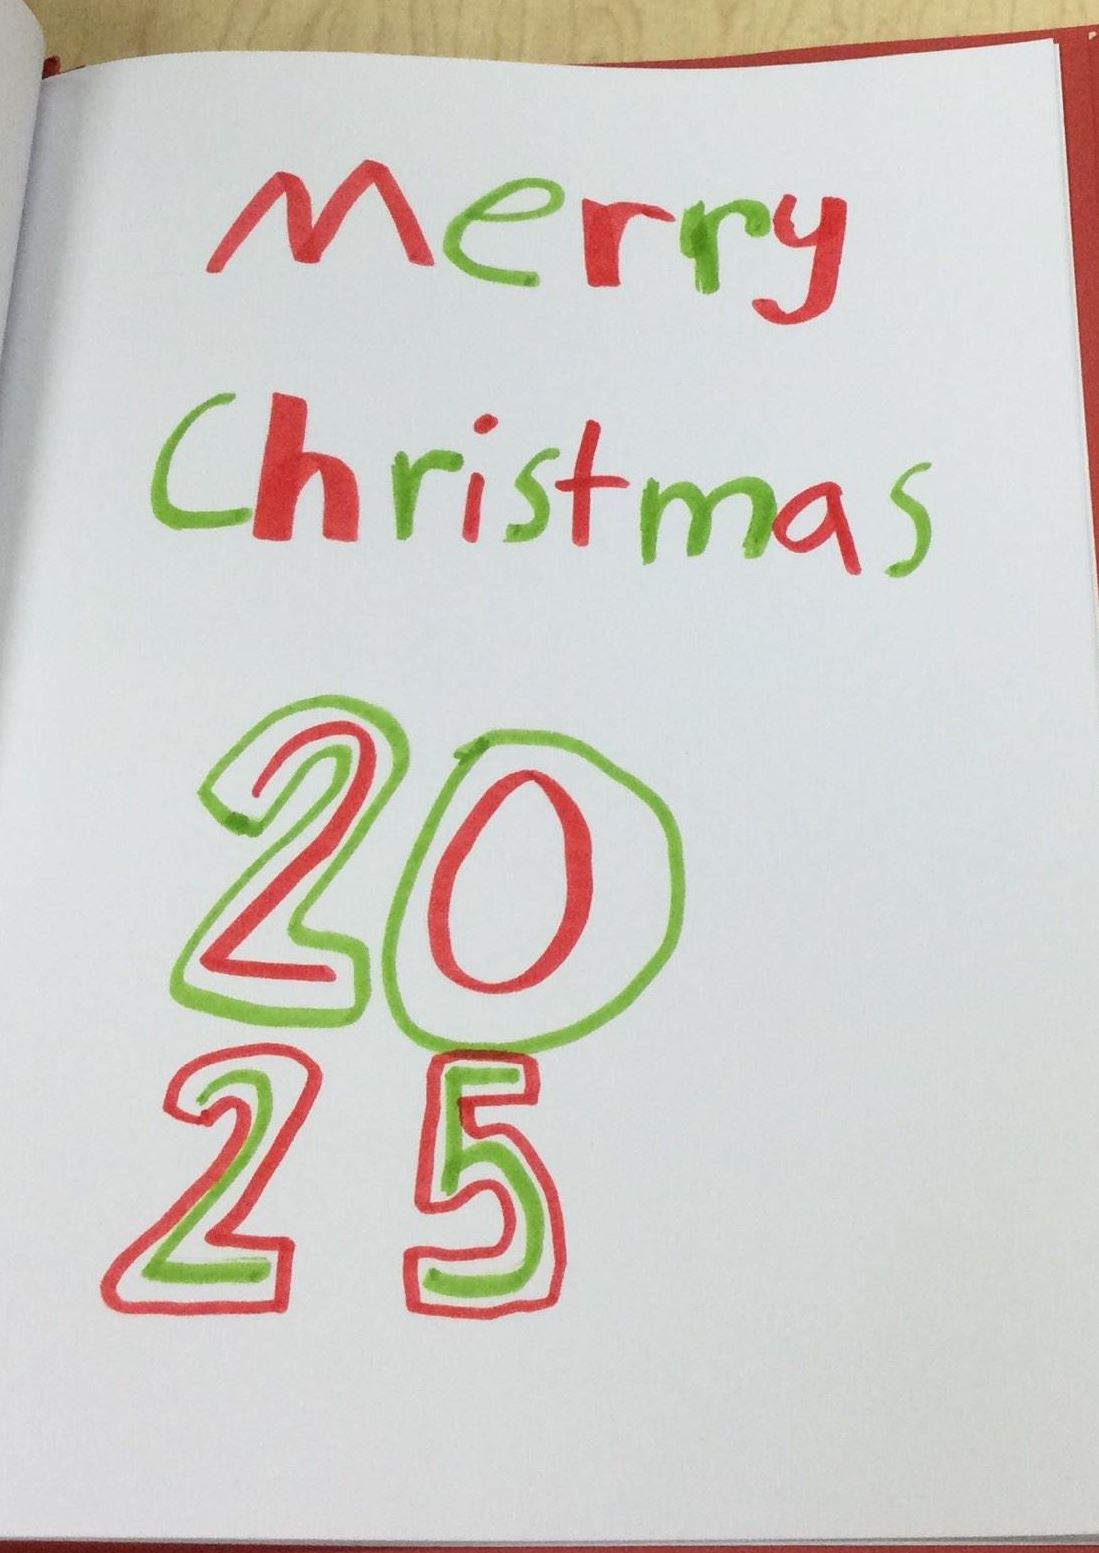 Merry
Christmas
20
25